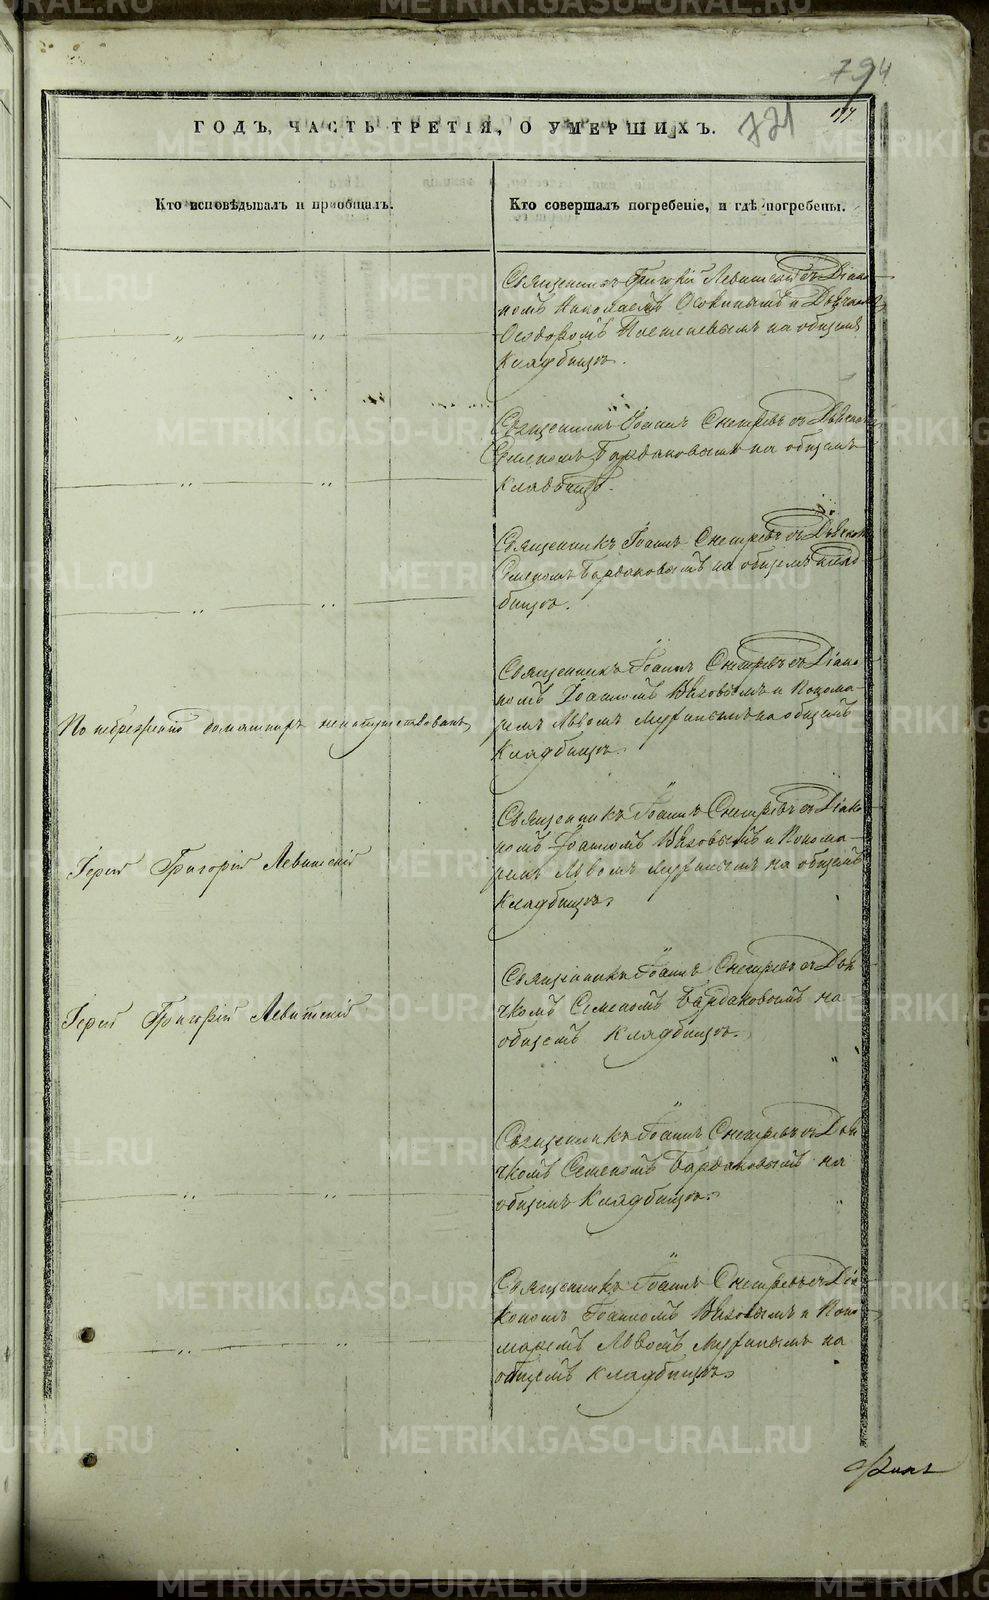 794
177
721
ГОДЪ, ЧАСТЬ ТРЕТІЯ, О УМЕРШИХЪ.
Кто исповѣдывалъ и пріобщалъ.
Кто совершалъ погребеніе, и гдѣ погребены.
Священникъ Григорій Левитскій съ Діако-
номъ Николаемъ и Дьячкомъ
Ѳеодоромъ на общемъ
Кладбищѣ.
Священникъ Іоаннъ Снегиревъ съ Дьячкомъ
Семеномъ Бардаковымъ на общемъ
кладбищѣ.
Священникъ Іоаннъ Снегиревъ съ Дьячкомъ
Семеномъ Бардаковымъ на общемъ клад-
бищѣ.
По небреженію домашнихъ не напутствованъ
Священникъ Іоаннъ Снегиревъ съ Діако-
номъ Іоанномъ Вяховымъ и Понома-
ремъ Львомъ на общемъ
Кладбищѣ.
Іерей Григорій Левитскій
Священникъ Іоаннъ Снегиревъ съ Діако-
номъ Іоанномъ Вяховымъ и Понома-
ремъ Львомъ на общемъ
Кладбищѣ.
Іерей Григорій Левитскій
Священникъ Іоаннъ Снегиревъ съ Дья-
чкомъ Семеномъ Бардаковымъ на
общемъ Кладбищѣ.
Священникъ Іоаннъ Снегиревъ съ Дья-
чкомъ Семеномъ Бардаковымъ на
общемъ Кладбищѣ.
Священникъ Іоаннъ Снегиревъ съ Діа-
кономъ Іоанномъ Вяховымъ и Поно-
маремъ Львомъ на
общемъ кладбищѣ.
METRIKI.GASO-URAL.RU